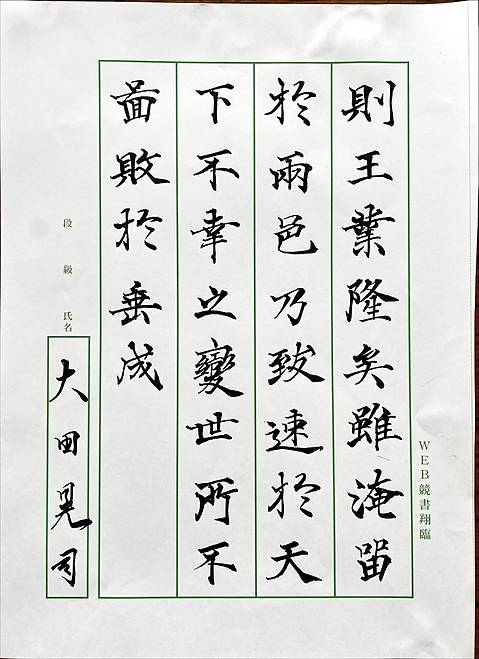 則王業隆矣雖淹留
於兩邑乃致速於天
下不幸之變世所不
啚敗於垂成
段 級 氏名
大田晃司
WEB競書翔臨